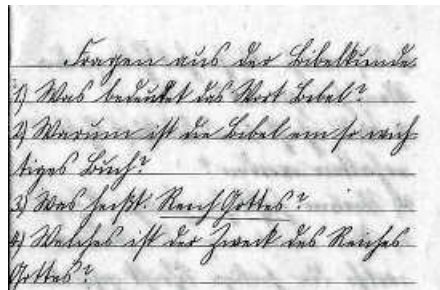 Fragen aus der Bibelkunde.
1) Was bedeutet das Wort Bibel?
2) Warum ist die Bibel ein so wich-
tiges Buch?
3) Was heißt: Reich Gottes?
4) Welches ist der Zweck des Reiches
Gottes?